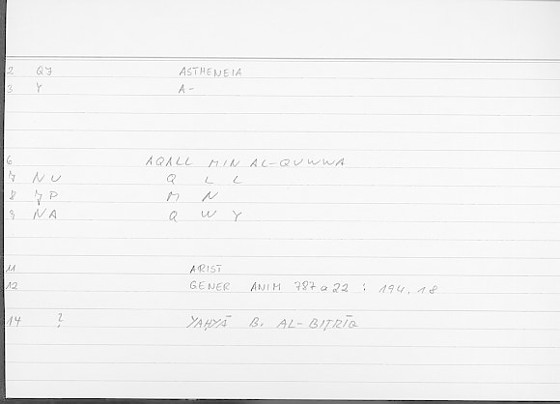 2 QJ ASTHENEIA
3 Y A-
6 AQALL MIN AL-QUWWA
7 NU Q L L
8 JP M N
9 NA Q W Y
11 ARIST
12 GENER ANIM 787a22 : 194.18
14 ? YAḤYĀ B. AL-BIṬRĪQ